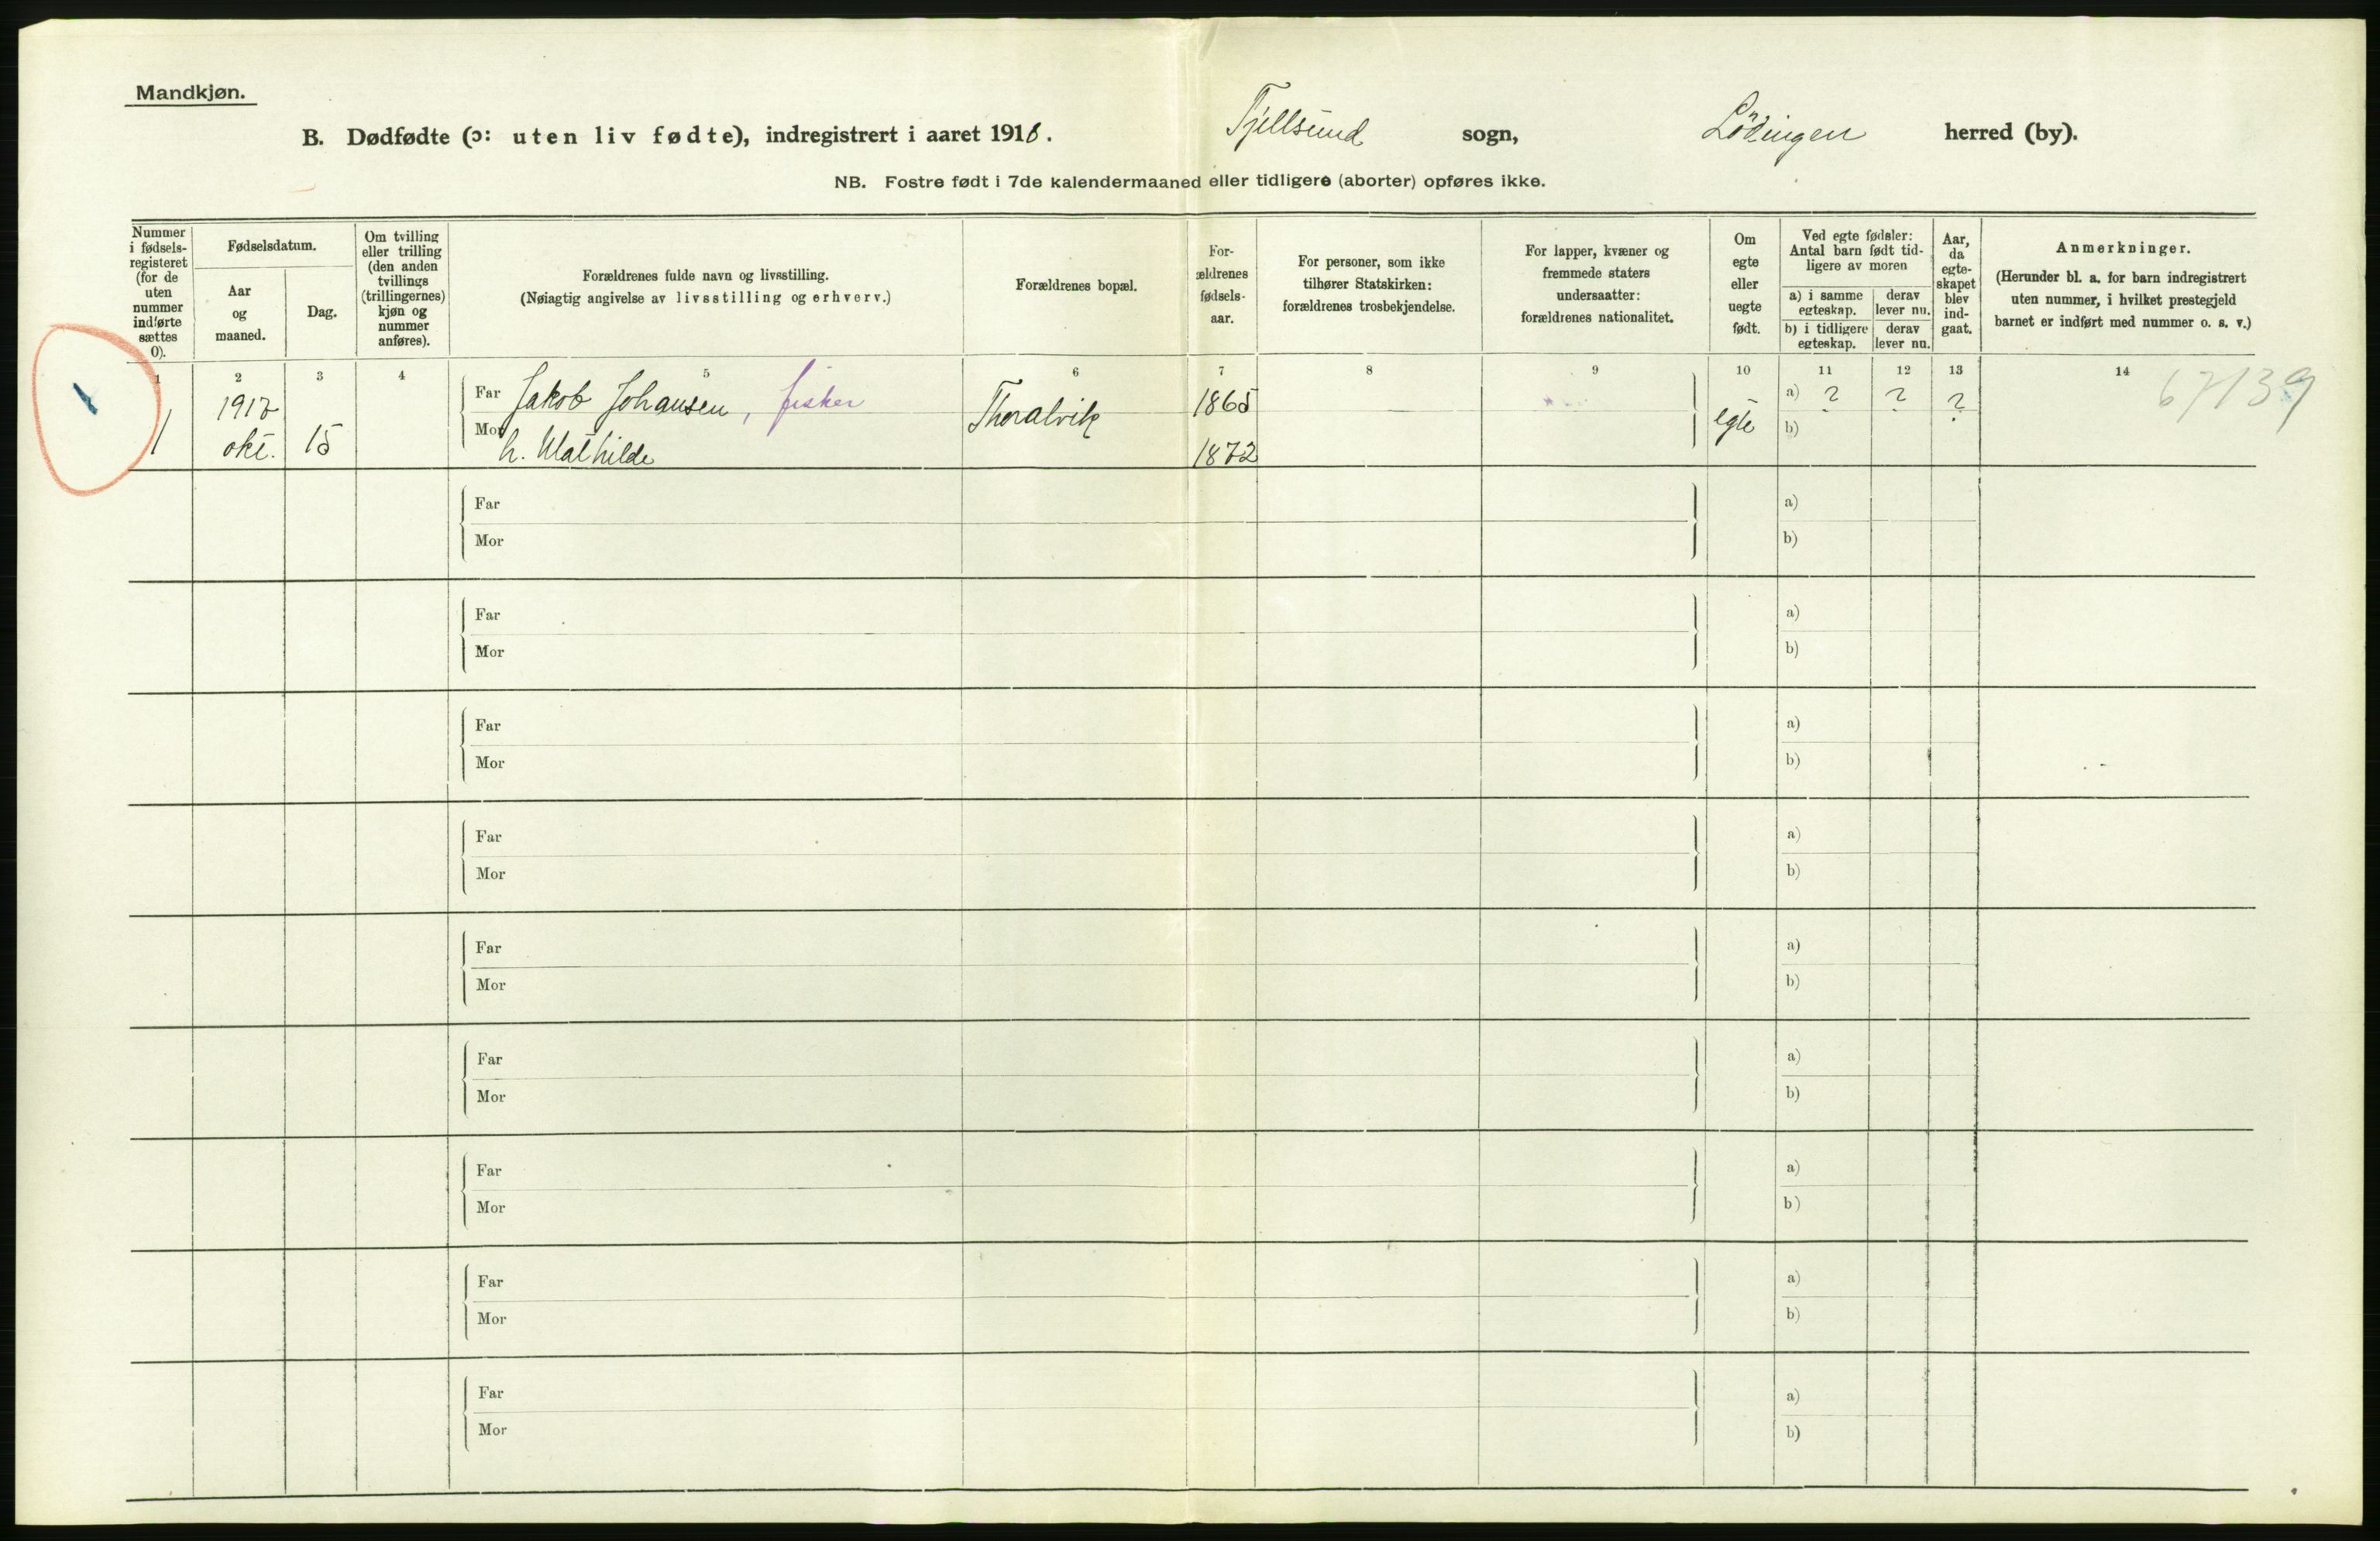 Mandkjøn.
B. Dødfødte (ɔ: uten liv fødte), indregistrert i aaret 1918. Tjellsund sogn, Lödingen herred (by).
NB. Fostre født i 7de kalendermaaned eller tidligere (aborter) opføres ikke.
Nummer i fødsels-registeret (for de uten nummer indførte sættes 0).
Fødselsdatum.
Aar og maaned.
Dag.
Om tvilling eller trilling (den anden tvillings (trillingernes) kjøn og nummer anføres).
Forældrenes fulde navn og livsstilling.
(Nøiagtig angivelse av livsstilling og erhverv.)
Forældrenes bopæl.
For-ældrenes fødsels-aar.
For personer, som ikke tilhører Statskirken: forældrenes trosbekjendelse.
For lapper, kvæner og fremmede staters undersaatter: forældrenes nationalitet.
Om egte eller uegte født.
Ved egte fødsler: Antal barn født tid-ligere av moren
a) i samme egteskap.
derav lever nu.
b) i tidligere egteskap.
derav lever nu.
Aar, da egte-skapet blev ind-gaat.
Anmerkninger.
(Herunder bl. a. for barn indregistrert uten nummer, i hvilket prestegjeld barnet er indført med nummer o. s. v.)
1 2 3 4 5 6 7 8 9 10 11 12 13 14
1 1917 okt. 15 Far Jakob Johansen, fisker Thoralvik 1865 — egte a) ? ? ? 67139
Mor h. Mathilde 1872 b)
Far a)
Mor b)
Far a)
Mor b)
Far a)
Mor b)
Far a)
Mor b)
Far a)
Mor b)
Far a)
Mor b)
Far a)
Mor b)
Far a)
Mor b)
Far a)
Mor b)